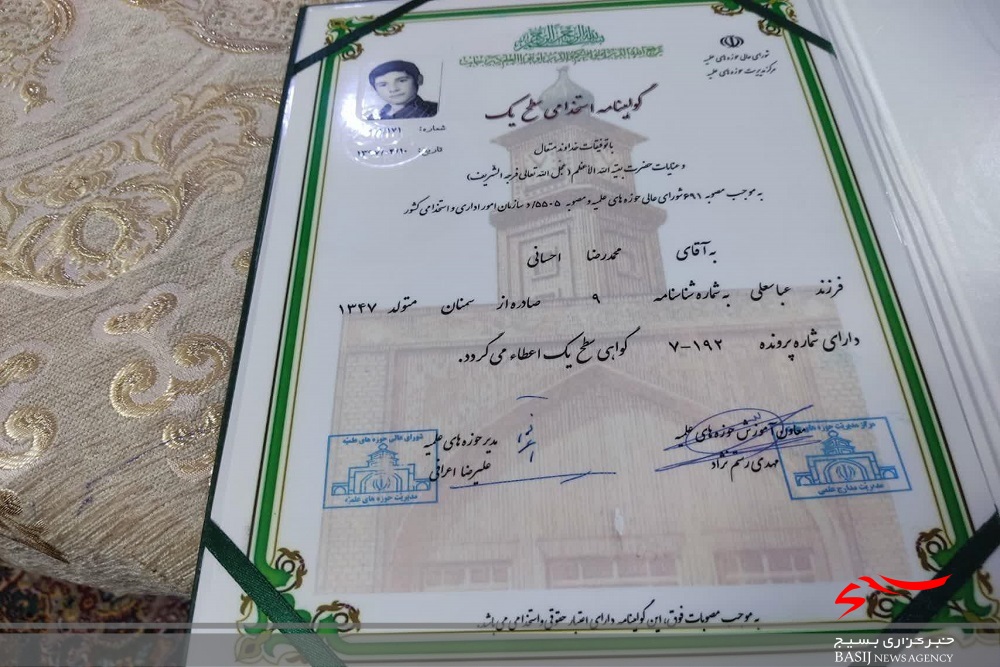 شورای عالی حوزه های علمیه
مرکز مدیریت حوزه های علمیه
شماره: ۱۷۱
تاریخ:
گواهینامه استخدامی سطح یک
با توفیقات خداوند متعال
و عنایات حضرت بقیة الله الاعظم (عجل الله تعالی فرجه الشریف)
به موجب مصوبه ۶۹۱ شورای عالی حوزه های علمیه و مصوبه ۵۵۰۵/د سازمان امور اداری و استخدامی کشور
به آقای محمدرضا احسانی
فرزند عباسعلی به شماره شناسنامه ۹ صادره از سمنان متولد ۱۳۴۷
دارای شماره پرونده ۷-۱۹۲ گواهی سطح یک اعطاء می گردد.
معاون آموزش حوزه های علمیه
مهدی رستم نژاد
مدیر حوزه های علمیه
علیرضا اعرافی
مرکز مدیریت حوزه های علمیه
مدیریت مدارج علمی
شورای عالی حوزه های علمیه
مدیریت حوزه های علمیه
به موجب مصوبات فوق، این گواهینامه دارای اعتبار حقوقی و استخدامی می باشد.
خبرگزاری بسیج
BASIJ NEWS AGENCY